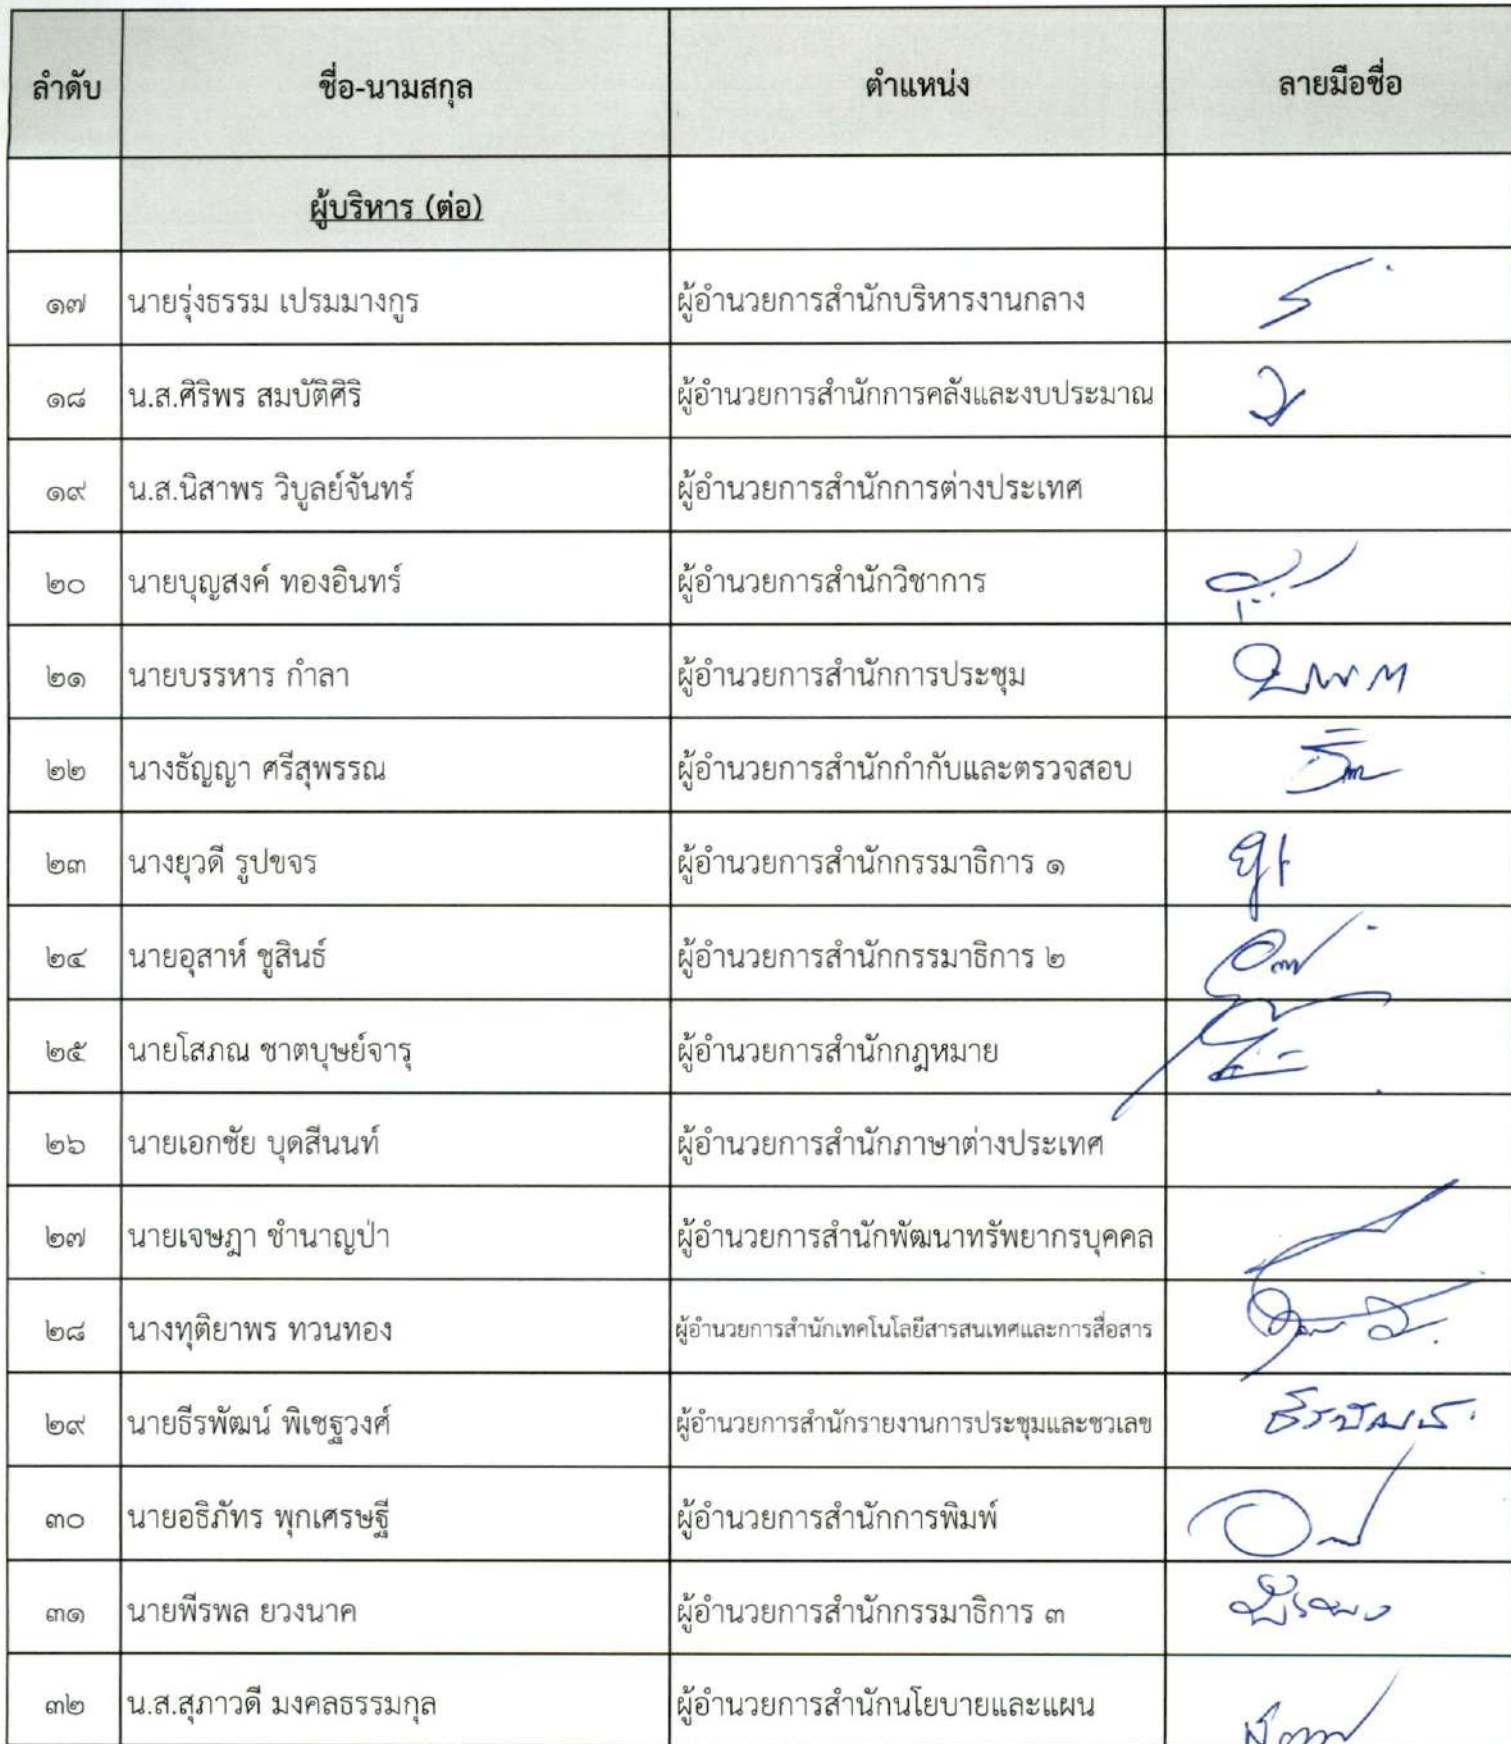 ลำดับ ชื่อ-นามสกุล ตำแหน่ง ลายมือชื่อ
ผู้บริหาร (ต่อ)
๑๗ นายรุ่งธรรม เปรมมางกูร ผู้อำนวยการสำนักบริหารงานกลาง
๑๘ น.ส.ศิริพร สมบัติศิริ ผู้อำนวยการสำนักการคลังและงบประมาณ
๑๙ น.ส.นิสาพร วิบูลย์จันทร์ ผู้อำนวยการสำนักการต่างประเทศ
๒๐ นายบุญสงค์ ทองอินทร์ ผู้อำนวยการสำนักวิชาการ
๒๑ นายบรรหาร กำลา ผู้อำนวยการสำนักการประชุม
๒๒ นางธัญญา ศรีสุพรรณ ผู้อำนวยการสำนักกำกับและตรวจสอบ
๒๓ นางยุวดี รูปขจร ผู้อำนวยการสำนักกรรมาธิการ ๑
๒๔ นายอุสาห์ ชูสินธ์ ผู้อำนวยการสำนักกรรมาธิการ ๒
๒๕ นายโสภณ ชาตบุษย์จารุ ผู้อำนวยการสำนักกฎหมาย
๒๖ นายเอกชัย บุดสีนนท์ ผู้อำนวยการสำนักภาษาต่างประเทศ
๒๗ นายเจษฎา ชำนาญป่า ผู้อำนวยการสำนักพัฒนาทรัพยากรบุคคล
๒๘ นางทุติยาพร ทวนทอง ผู้อำนวยการสำนักเทคโนโลยีสารสนเทศและการสื่อสาร
๒๙ นายธีรพัฒน์ พิเชฐวงศ์ ผู้อำนวยการสำนักรายงานการประชุมและชวเลข ธีรพัฒน์
๓๐ นายอธิภัทร พุกเศรษฐี ผู้อำนวยการสำนักการพิมพ์
๓๑ นายพีรพล ยวงนาค ผู้อำนวยการสำนักกรรมาธิการ ๓
๓๒ น.ส.สุภาวดี มงคลธรรมกุล ผู้อำนวยการสำนักนโยบายและแผน